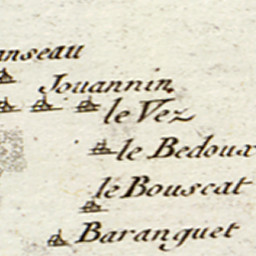 anseau
Jouannin
le Vez
le Bedoux
le Bouscat
Baranquet